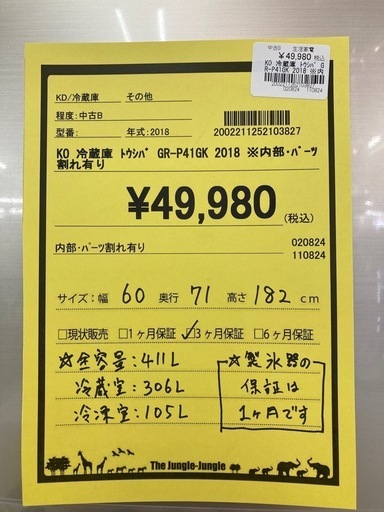 中古B 生活家電
¥49,980 税込
KO 冷蔵庫 ﾄｳｼﾊﾞ G
R-P41GK 2018 ※内
2002211252103827
020824 110824
KD/冷蔵庫 その他
程度:中古B
型番: 年式:2018
2002211252103827
KO 冷蔵庫 ﾄｳｼﾊﾞ GR-P41GK 2018 ※内部･ﾊﾟｰﾂ
割れ有り
¥49,980(税込)
内部･ﾊﾟｰﾂ割れ有り 020824
110824
サイズ:幅 60 奥行 71 高さ 182 cm
□現状販売 □1ヶ月保証 ☑3ヶ月保証 □6ヶ月保証
☆全容量:411L
冷蔵室:306L
冷凍室:105L
☆製氷器の
保証は
1ヶ月です
The Jungle-Jungle